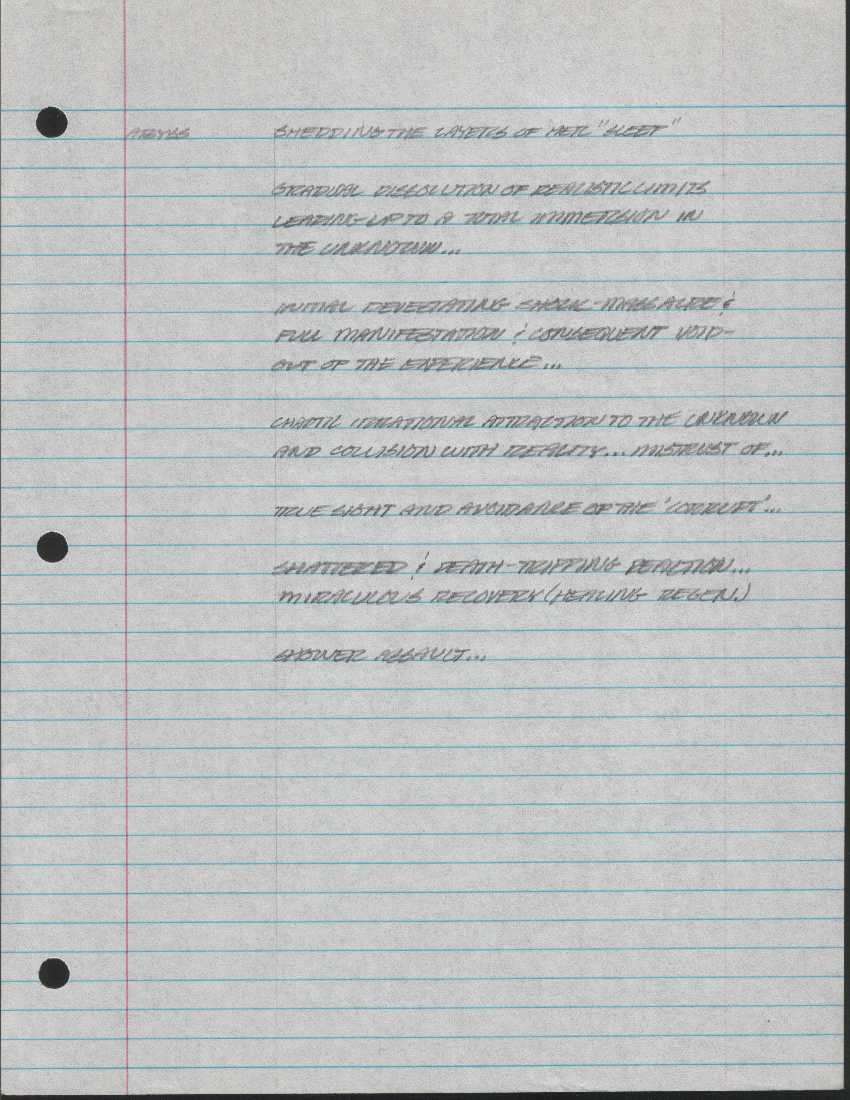 ABYSS SHEDDING THE LAYERS OF HER "SLEEP"
GRADUAL DISSOLUTION OF REALISTIC LIMITS
LEADING UP TO A TOTAL IMMERSION IN
THE UNKNOWN...
INITIAL DEVESTATING SHOCK-MASSACRE &
FULL MANIFESTATION & CONSEQUENT VOID-
OUT OF THE EXPERIENCE...
CHAOTIC IRRATIONAL ATTRACTION TO THE UNKNOWN
AND COLLISION WITH REALITY... MISTRUST OF...
TRUE SIGHT AND AVOIDANCE OF THE 'CORRUPT'...
SHATTERED & DEATH-TRIPPING REACTION...
MIRACULOUS RECOVERY (HEALING REGEN.)
SHOWER ASSAULT...